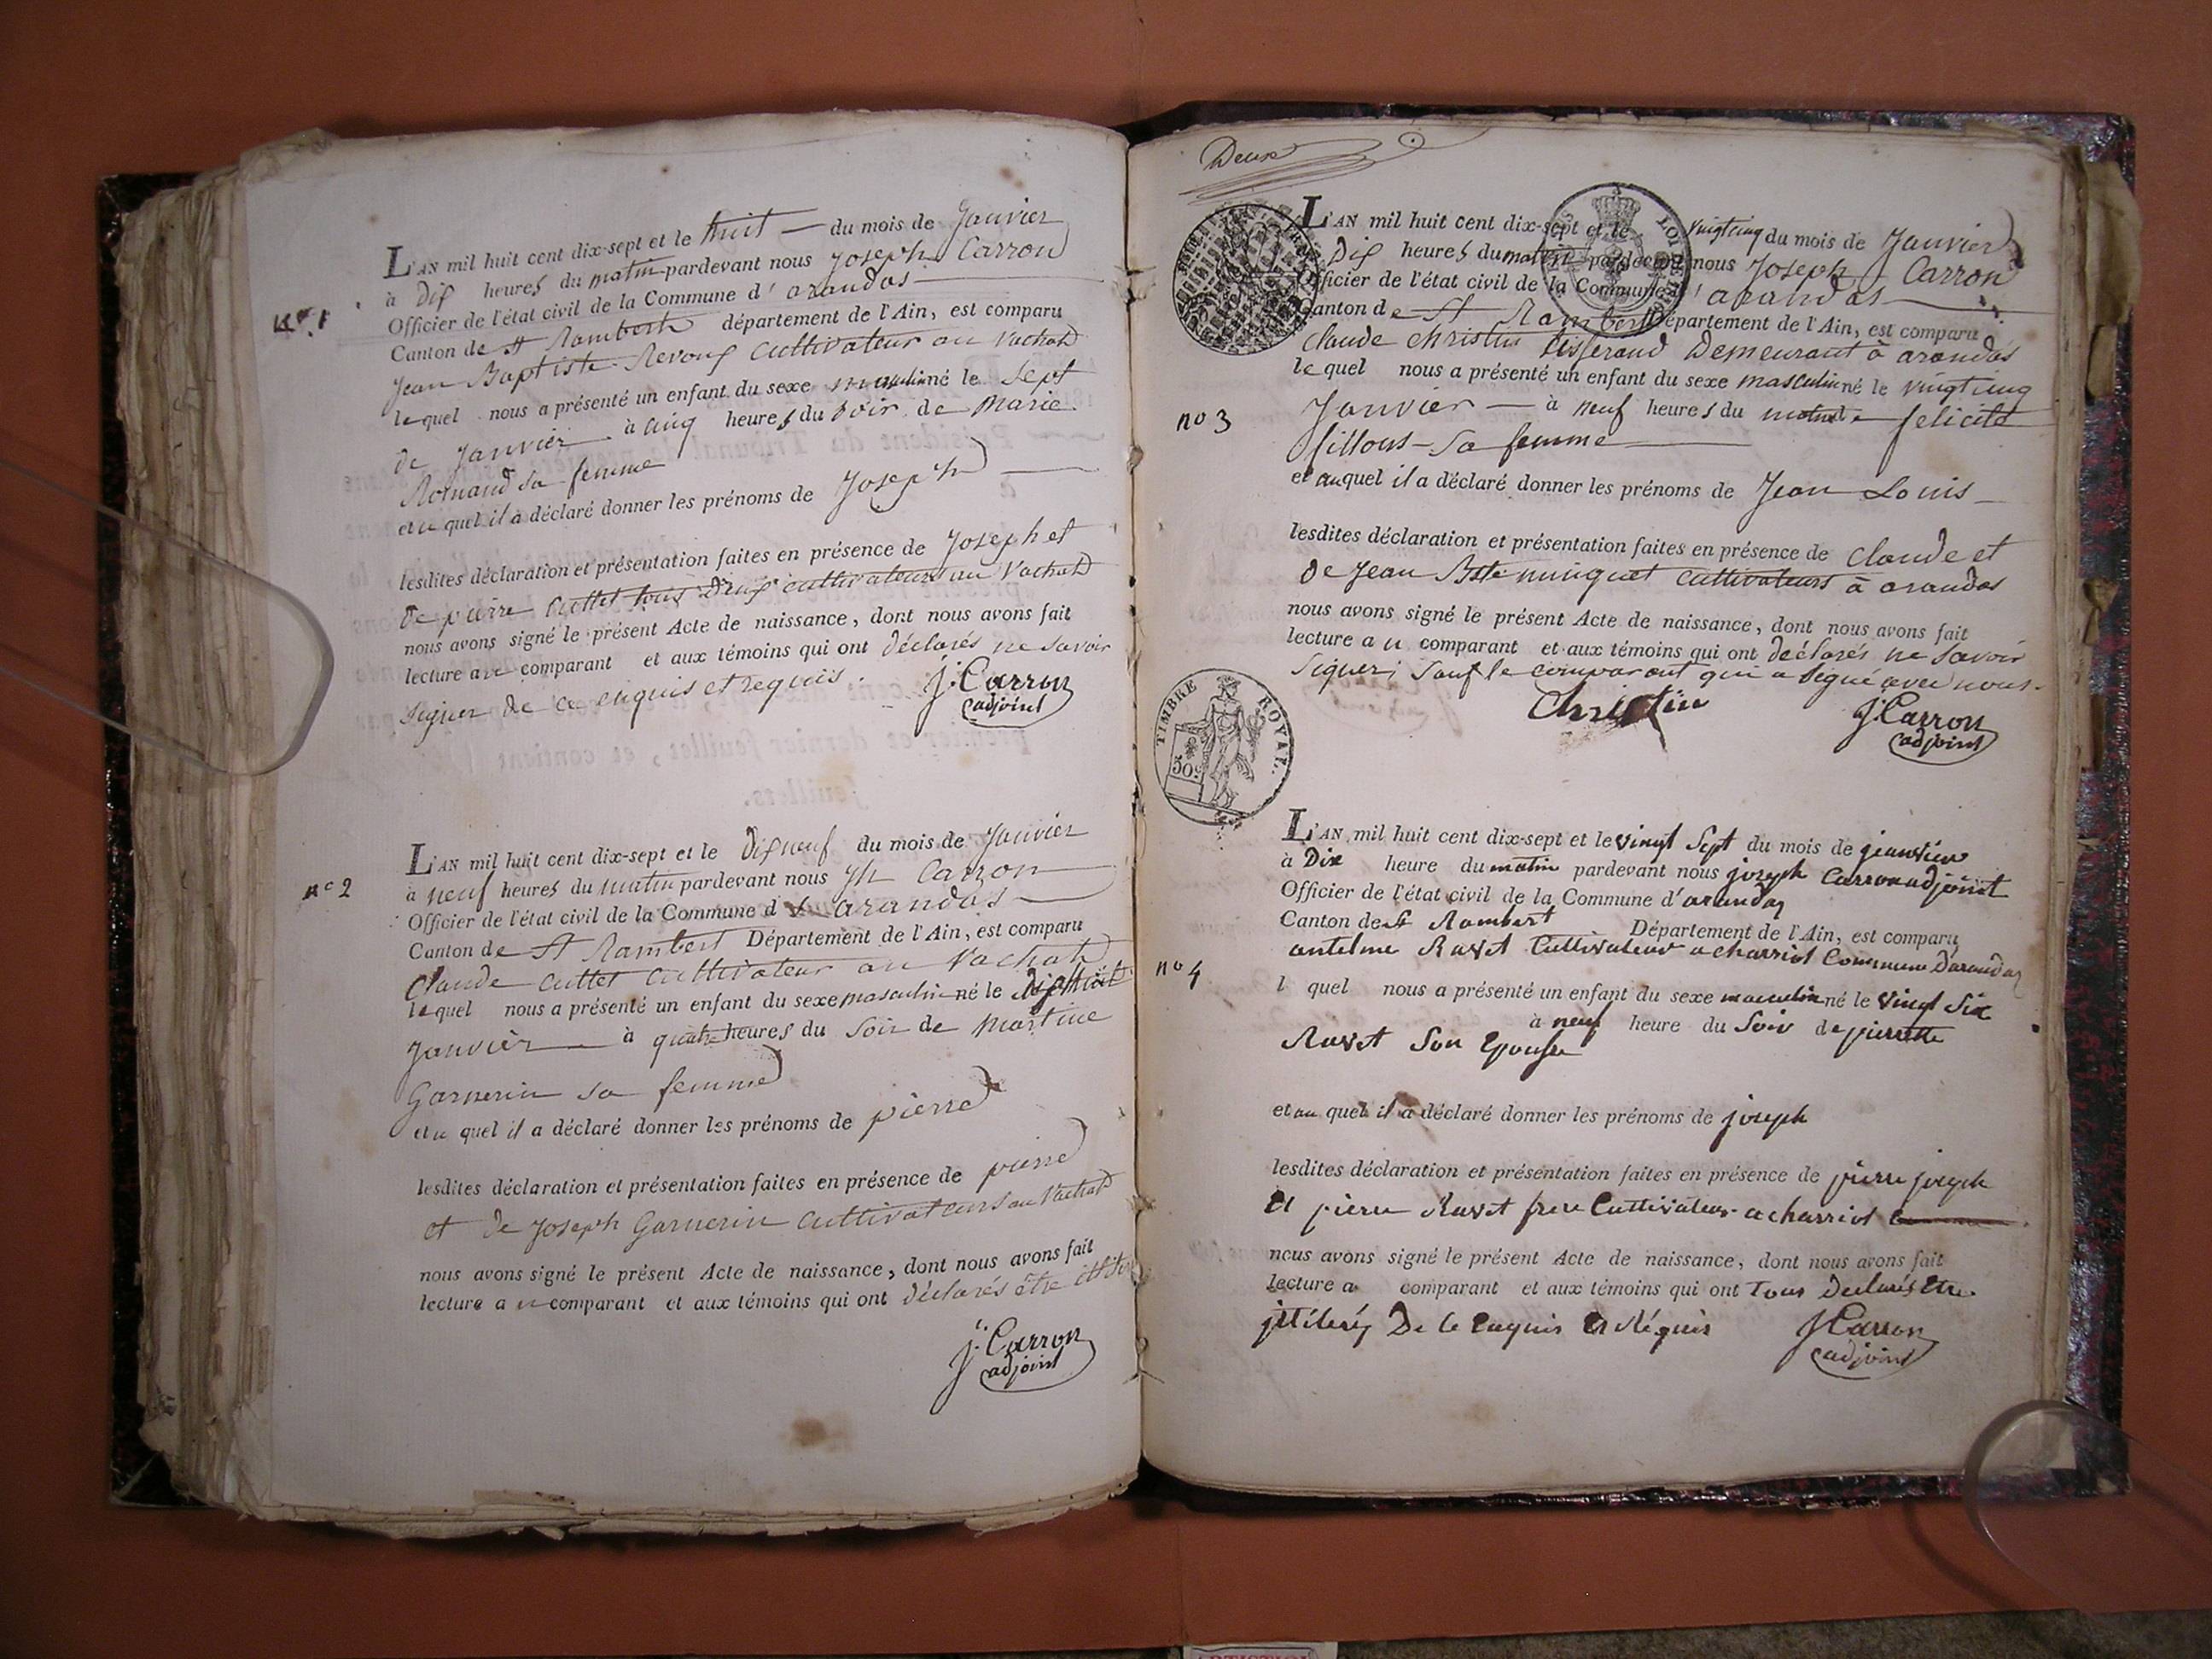 N° 1
L'AN mil huit cent dix-sept et le huit — du mois de Janvier
à Dix heures du matin pardevant nous Joseph Carron
Officier de l'état civil de la Commune d'arandas
Canton de St Rambert département de l'Ain, est comparu
Jean Baptiste Revoux cultivateur au Vachat
lequel nous a présenté un enfant du sexe masculin né le Sept
de Janvier à cinq heures du soir de Marie
sa femme
et au quel il a déclaré donner les prénoms de Joseph
lesdites déclaration et présentation faites en présence de Joseph et
de pierre Cuttet tous Deux cultivateurs au Vachat
nous avons signé le présent Acte de naissance, dont nous avons fait
lecture au comparant et aux témoins qui ont déclarés ne savoir
signer de ce enquis et requis.
J. Carron
adjoint
n° 2
L'AN mil huit cent dix-sept et le Dix neuf du mois de Janvier
à neuf heures du matin pardevant nous Jh Carron
Officier de l'état civil de la Commune d arandas
Canton de St Rambert Département de l'Ain, est comparu
Claude Cuttet cultivateur au Vachat
lequel nous a présenté un enfant du sexe masculin né le Dix huit
Janvier à quatre heures du Soir de Martine
Garnerin sa femme
et au quel il a déclaré donner les prénoms de pierre
lesdites déclaration et présentation faites en présence de pierre
et de Joseph Garnerin cultivateurs au Vachat
nous avons signé le présent Acte de naissance, dont nous avons fait
lecture au comparant et aux témoins qui ont déclarés être
J. Carron
adjoint
Deux
L'AN mil huit cent dix-sept et le vingt cinq du mois de Janvier
à Dix heures du matin pardevant nous Joseph Carron
Officier de l'état civil de la Commune d'arandas
Canton de St Rambert Département de l'Ain, est comparu
Claude Christin tisserand Demeurant à arandas
lequel nous a présenté un enfant du sexe masculin né le vingt cinq
n° 3
Janvier — à neuf heures du matin de felicité
fillous sa femme
et auquel il a déclaré donner les prénoms de Jean Louis
lesdites déclaration et présentation faites en présence de Claude et
de Jean Bste cultivateurs à arandas
nous avons signé le présent Acte de naissance, dont nous avons fait
lecture au comparant et aux témoins qui ont déclarés ne savoir
signer; sauf le comparant qui a signé avec nous.
Christin
J. Carron
adjoint
TIMBRE ROYAL.
50c
L'AN mil huit cent dix-sept et le vingt Sept du mois de
à Dix heure du matin pardevant nous joseph Carron adjoint
Officier de l'état civil de la Commune d'arandas
Canton de St Rambert Département de l'Ain, est comparu
antelme Ravet Cultivateur a charriot Commune D'arandas
n° 4
l quel nous a présenté un enfant du sexe masculin né le vingt Six
à neuf heure du Soir de pierrette
Ravet Son Epouse
et au quel il a déclaré donner les prénoms de joseph
lesdites déclaration et présentation faites en présence de pierre joseph
et pierre Ravet frere Cultivateur a charriot
nous avons signé le présent Acte de naissance, dont nous avons fait
lecture a comparant et aux témoins qui ont Tous Declarés Etre
De Ce Enquis Et Réquis
J Carron
adjoint